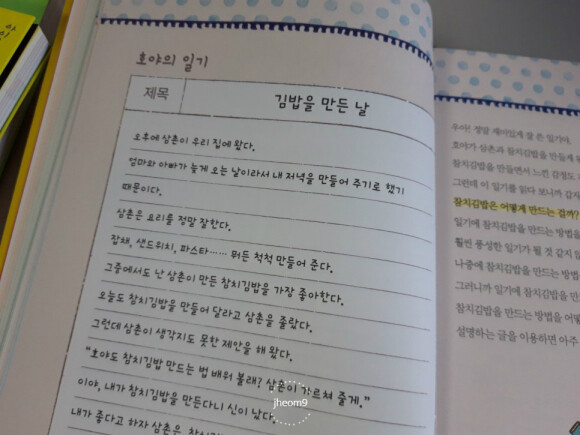 호야의 일기
제목 김밥을 만든 날
오후에 삼촌이 우리 집에 왔다.
엄마와 아빠가 늦게 오는 날이라서 내 저녁을 만들어 주기로 했기
때문이다.
삼촌은 요리를 정말 잘한다.
잡채, 샌드위치, 파스타…… 뭐든 척척 만들어 준다.
그중에서도 난 삼촌이 만든 참치김밥을 가장 좋아한다.
오늘도 참치김밥을 만들어 달라고 삼촌을 졸랐다.
그런데 삼촌이 생각지도 못한 제안을 해 왔다.
"호야도 참치김밥 만드는 법 배워 볼래? 삼촌이 가르쳐 줄게."
이야, 내가 참치김밥을 만든다니 신이 났다.
내가 좋다고 하자 삼촌은
jheom9
우아! 정말 재미있게 잘 쓴 일기야.
호야가 삼촌과 참치김밥을 만들게
참치김밥을 만들면서 느낀 감정도
그런데 이 일기를 읽다 보니까 갑자
참치김밥은 어떻게 만드는 걸까?
일기에 참치김밥을 만드는 방법을
훨씬 풍성한 일기가 될 것 같지 않
나중에 참치김밥을 만드는 방법
그러니까 일기에 참치김밥을 만드
참치김밥을 만드는 방법을 어떻
설명하는 글을 이용하면 아주